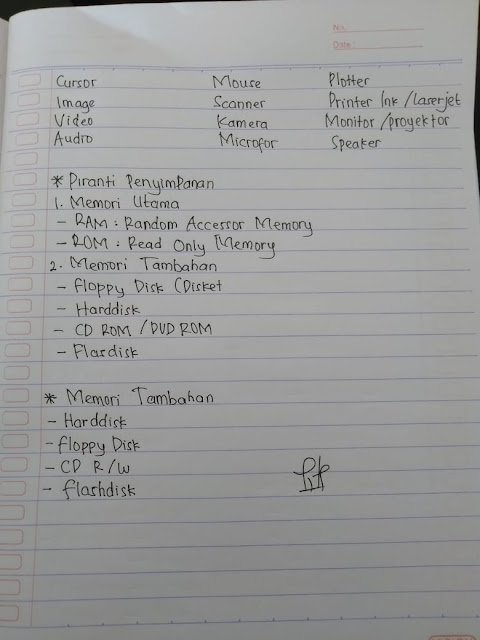 No.
Date:
Cursor Mouse Plotter
Image Scanner Printer Ink /laserjet
Video Kamera Monitor /proyektor
Audro Microfor Speaker
* Piranti Penyimpanan
1. Memori Utama
- RAM : Random Accessor Memory
- ROM : Read Only Memory
2. Memori Tambahan
- Floppy Disk (Disket
- Harddisk
- CD ROM / DVD ROM
- Flasdisk
* Memori Tambahan
- Harddisk
- Floppy Disk
- CD R/W
- Flashdisk